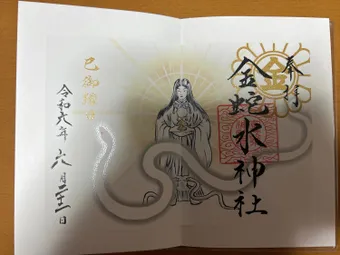 奉拝
金
金蛇水神社
巳御縁日
令和六年六月二十一日